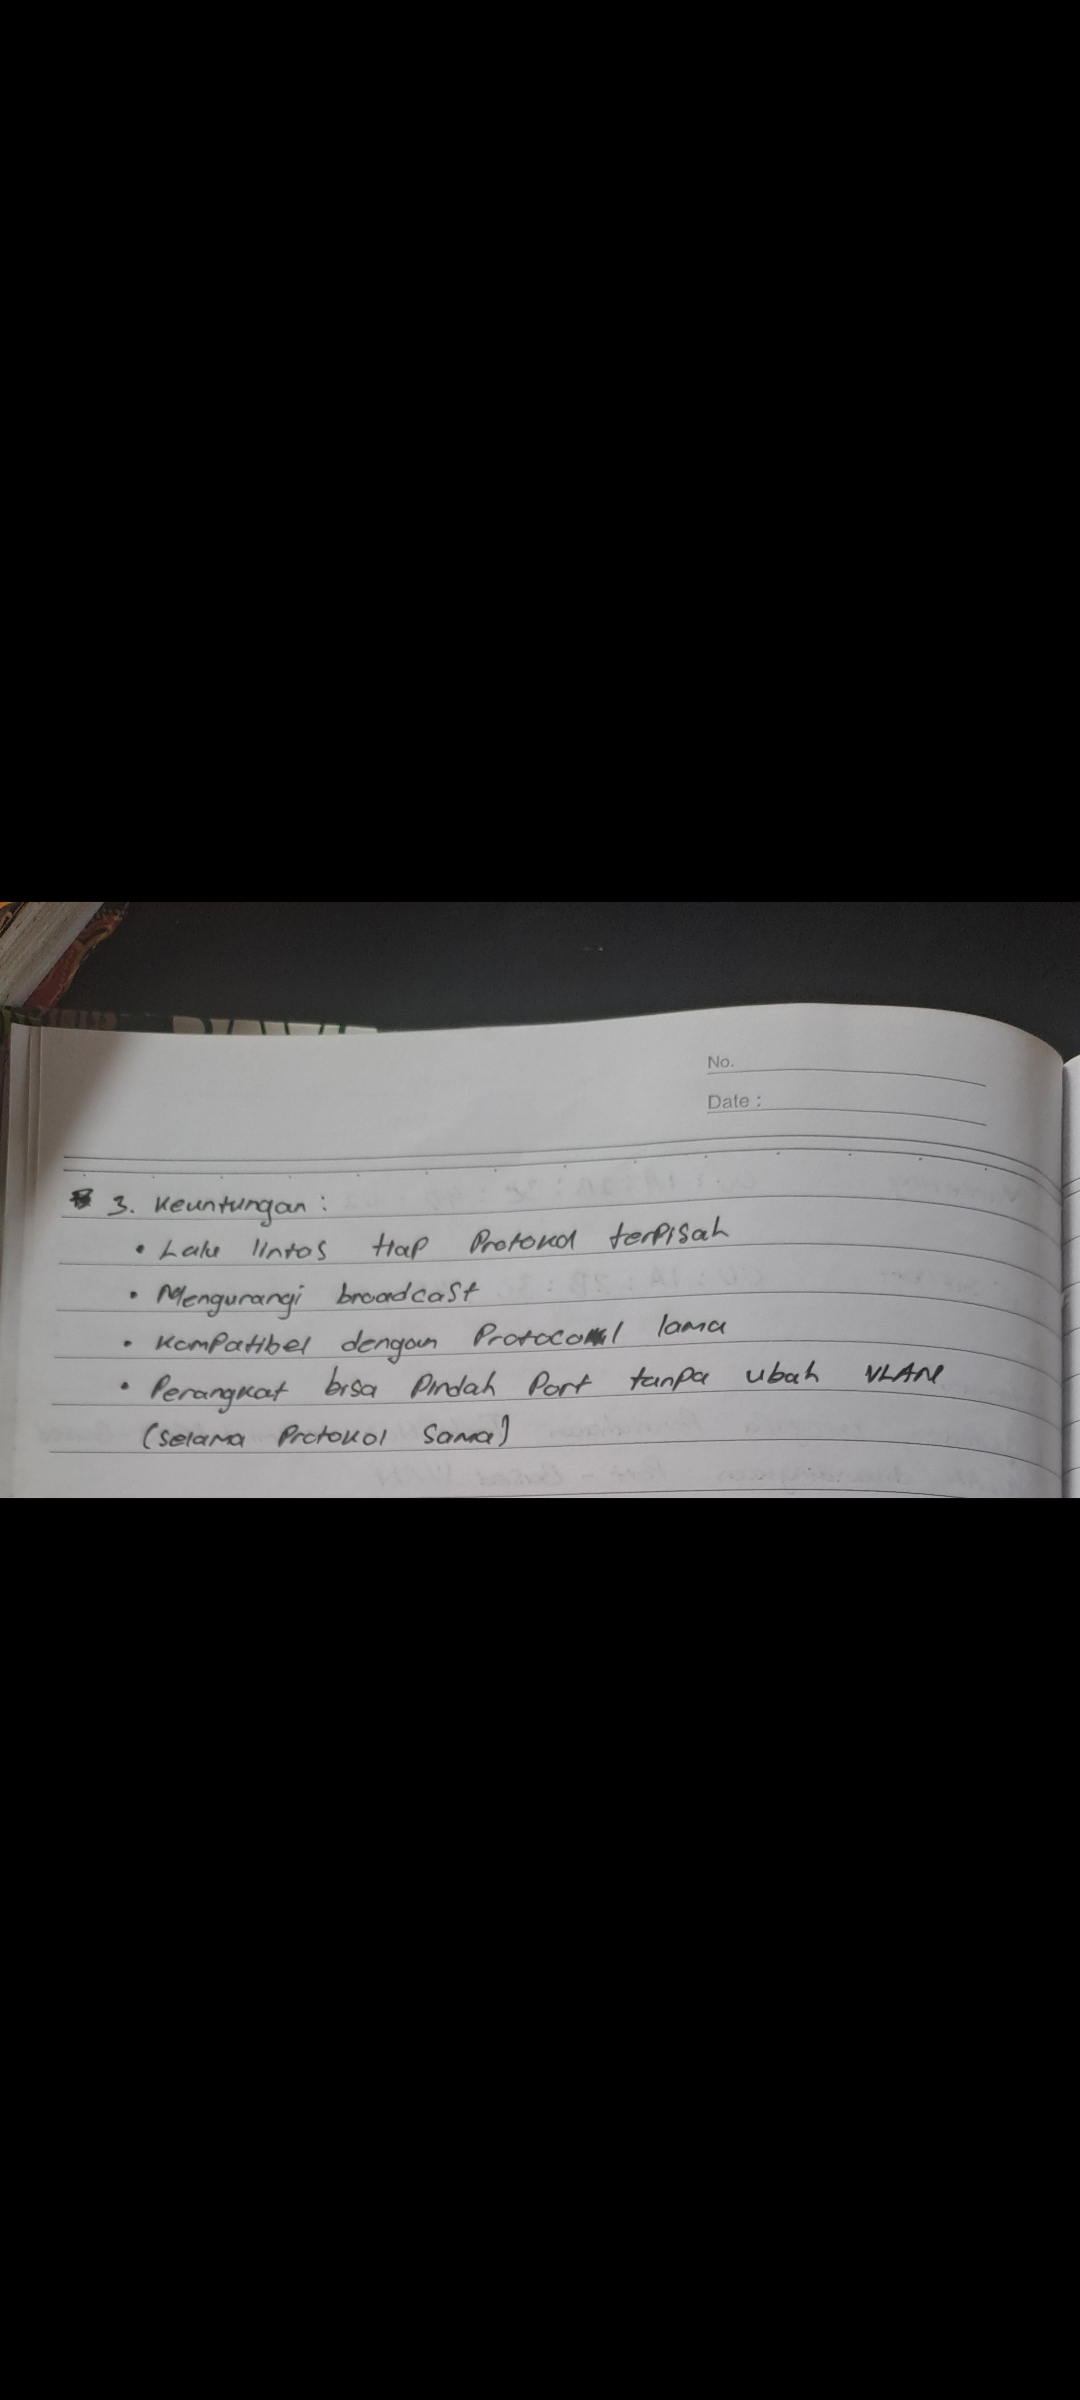 No.
Date :
3. Keuntungan :
• Lalu lintas tiap Protokol terpisah
• Mengurangi broadcast
• Kompatibel dengan Protocol lama
• Perangkat bisa Pindah Port tanpa ubah VLAN
(Selama Protokol Sama)